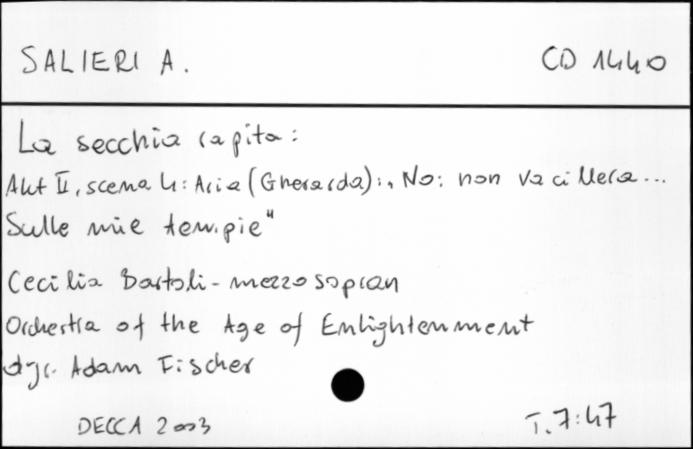 SALIERI A. CD 1440
La secchia rapita:
Akt II, scena 4: Aria (Gherarda): „No: non vacillera...
Sulle mie tempie"
Cecilia Bartoli - mezzosopran
Orchestra of the Age of Enlightenment
dyr. Adam Fischer
DECCA 2003 T. 7:47